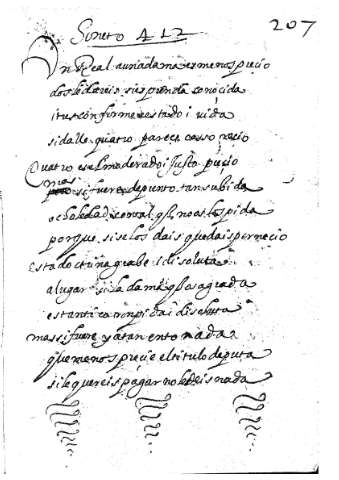 Soneto 412
207
Un Real auna dama es menos preçio
dos le dareis si es prenda conoçida
i tres conforme a estado i vida
si dalle quatro pareçe casso reçio
Quatro es el moderado i justo preçio
mas si fuere de punto tan subida
ocho le dad i con tal que no os los pida
porque si se los dais quedais por neçio
esta doctrina grabe i disoluta
a lugar si la dama que os agrada
estanti corronpida i disoluta
mas si fuere ya tan entonada
que menos preçie el titulo de puta
si le quereis pagar no le deis nada